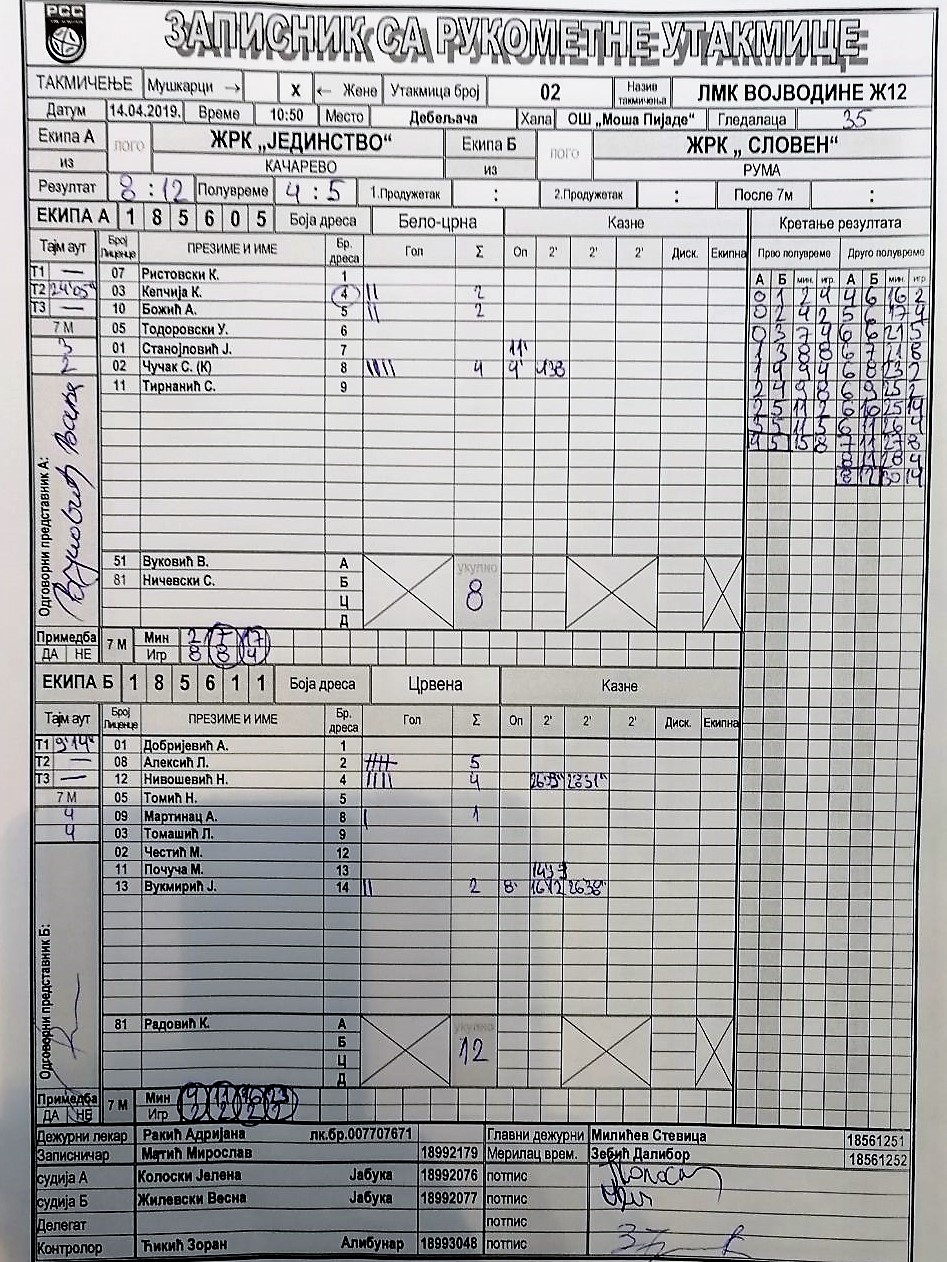 РСС
ЗАПИСНИК СА РУКОМЕТНЕ УТАКМИЦЕ
ТАКМИЧЕЊЕ Мушкарци → X ← Жене Утакмица број 02 Назив такмичења ЛМК ВОЈВОДИНЕ Ж12
Датум 14.04.2019. Време 10:50 Место Дебељача Хала ОШ „Моша Пијаде“ Гледалаца 35
Екипа А лого ЖРК „ЈЕДИНСТВО“ Екипа Б лого ЖРК „ СЛОВЕН“
из КАЧАРЕВО из РУМА
Резултат 8 : 12 Полувреме 4 : 5 1.Продужетак : 2.Продужетак : После 7м :
ЕКИПА А 1 8 5 6 0 5 Боја дреса Бело-црна Казне Кретање резултата
Тајм аут Број Лиценце ПРЕЗИМЕ И ИМЕ Бр. дреса Гол Σ Оп 2' 2' 2' Диск. Екипна Прво полувреме Друго полувреме
А Б мин. игр А Б мин. игр
Т1 — 07 Ристовски К. 1 0 1 2 4 4 6 16 2
Т2 24'05" 03 Кепчија К. 4 || 2 0 2 4 2 5 6 17 4
Т3 — 10 Божић А. 5 || 2 0 3 7 4 6 6 21 5
7 М 05 Тодоровски У. 6 1 3 8 8 6 7 21 8
3 01 Станојловић Ј. 7 11' 1 4 9 4 6 8 23 2
2 02 Чучак С. (К) 8 |||| 4 4' 2 4 9 8 6 9 25 2
11 Тирнанић С. 9 2 5 11 2 6 10 25 14
6 11 26 4
4 5 15 8 7 11 27 8
8 11 28 4
8 12 30 14
Одговорни представник А:
51 Вуковић В. А укупно
81 Ничевски С. Б 8
Ц
Д
Примедба 7 М Мин 2 17 17
ДА НЕ Игр 8 8 4
ЕКИПА Б 1 8 5 6 1 1 Боја дреса Црвена Казне
Тајм аут Број Лиценце ПРЕЗИМЕ И ИМЕ Бр. дреса Гол Σ Оп 2' 2' 2' Диск. Екипна
Т1 9'14" 01 Добријевић А. 1
Т2 — 08 Алексић Л. 2 5
Т3 — 12 Нивошевић Н. 4 |||| 4
7 М 05 Томић Н. 5
4 09 Мартинац А. 8 | 1
4 03 Томашић Л. 9
02 Честић М. 12
11 Почуча М. 13
13 Вукмирић Ј. 14 || 2 8'
Одговорни представник Б:
81 Радовић К. А укупно
Б 12
Ц
Д
Примедба 7 М Мин 9 11 16 23
ДА НЕ Игр 2 2 2 2
Дежурни лекар Ракић Адријана лк.бр.007707671 Главни дежурни Милићев Стевица 18561251
Записничар Матић Мирослав 18992179 Мерилац врем. Зебић Далибор 18561252
судија А Колоски Јелена Јабука 18992076 потпис
судија Б Жилевски Весна Јабука 18992077 потпис
Делегат потпис
Контролор Ћикић Зоран Алибунар 18993048 потпис